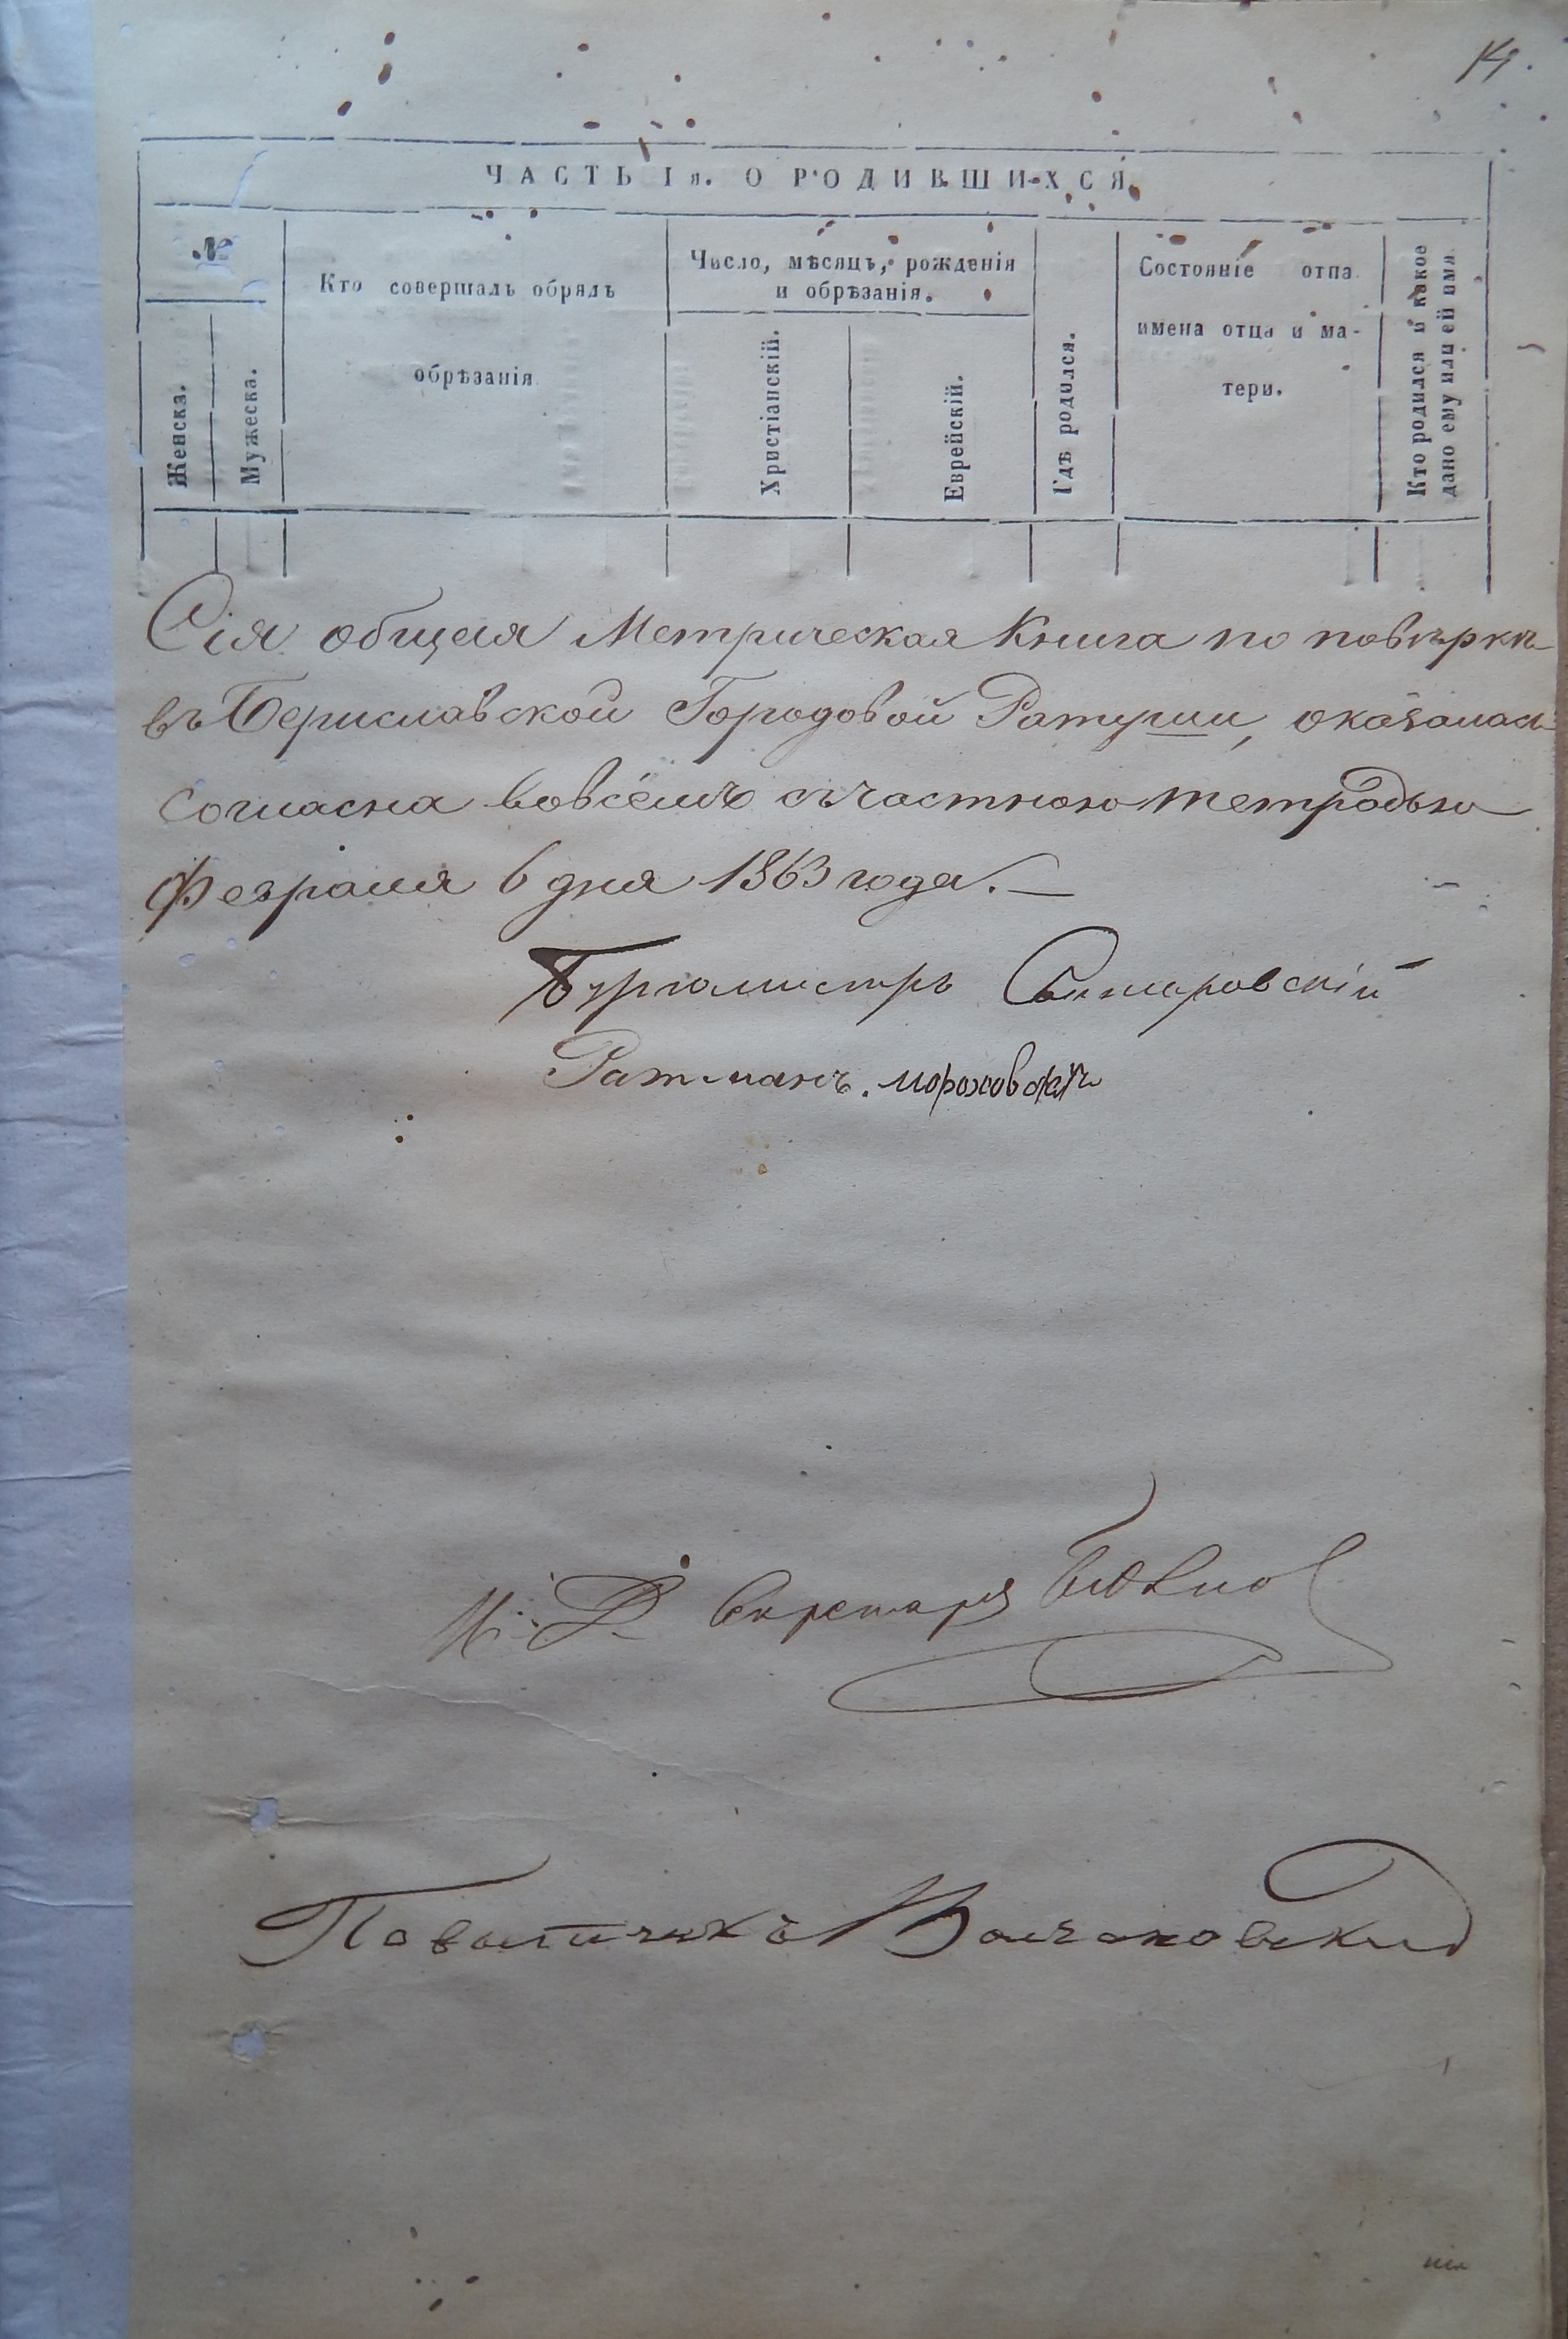 14.
ЧАСТЬ Iя. О РОДИВШИХСЯ.
№
Женска.
Мужеска.
Кто совершалъ обрядъ
обрѣзанія
Число, мѣсяцъ, рожденія
и обрѣзанія.
Христіанскій.
Еврейскій.
Гдѣ родился.
Состояніе отца
имена отца и ма-
тери.
Кто родился и какое
дано ему или ей имя
Сія общая Метрическая Книга по повѣркѣ
въ Бериславской Городовой Ратуши, оказалась
Согласна вовсемъ съ частною тетрадью
Февраля 6 дня 1863 года.—
Бургомистръ
Ратманъ.
И. Д. Секретаря